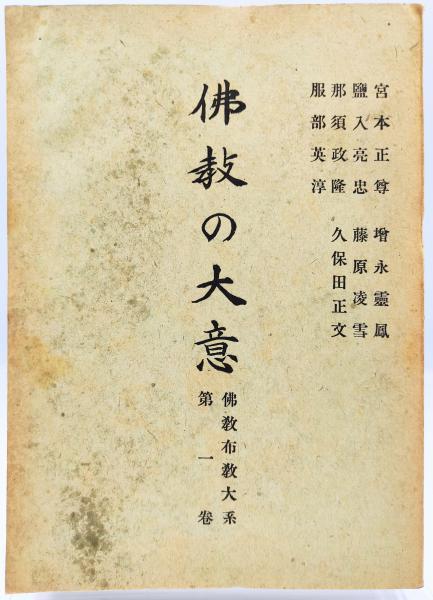 宮本正尊　增永靈鳳
鹽入亮忠　藤原凌雪
那須政隆　久保田正文
服部英淳
佛敎の大意
佛敎布敎大系
第一卷